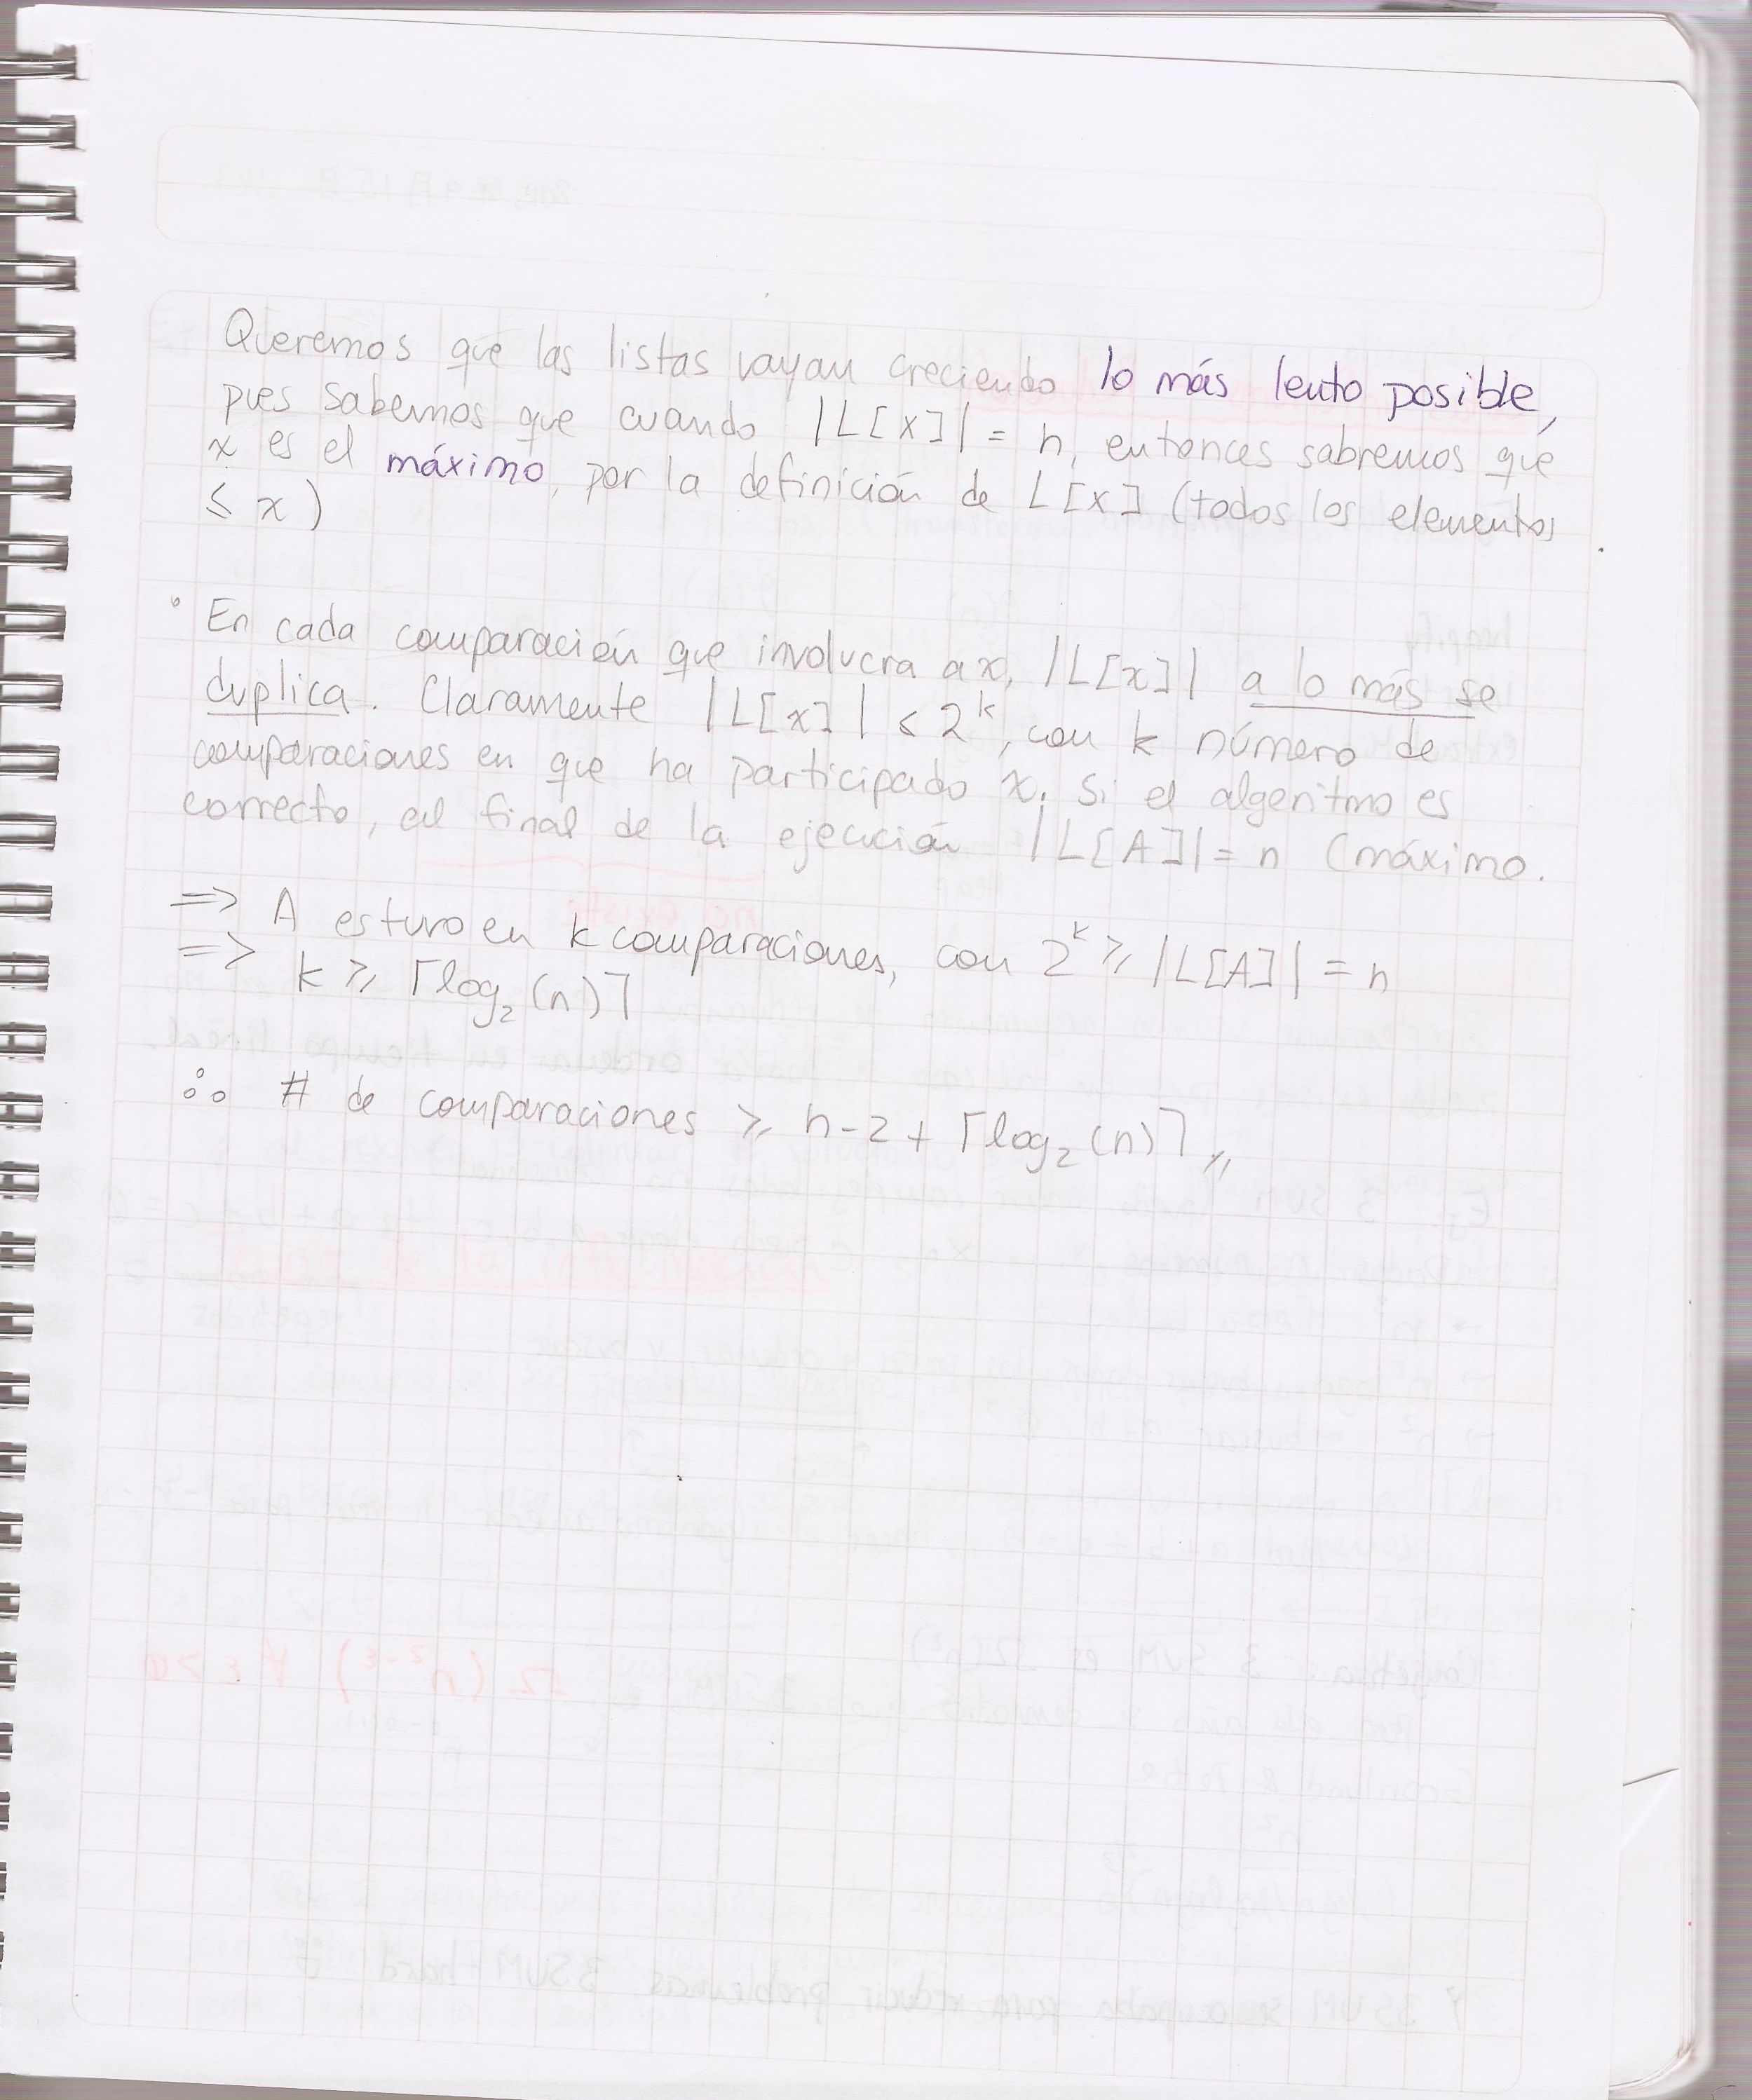 Queremos que las listas vayan creciendo lo más lento posible,
pues sabemos que cuando |L[x]| = n, entonces sabremos que
x es el máximo, por la definición de L[x] (todos los elementos
≤ x)
° En cada comparación que involucra a x, |L[x]| a lo más se
duplica. Claramente |L[x]| ≤ 2^k, con k número de
comparaciones en que ha participado x. Si el algoritmo es
correcto, al final de la ejecución |L[A]| = n (máximo.
=> A estuvo en k comparaciones, con 2^k ≥ |L[A]| = n
=> k ≥ ⌈log₂(n)⌉
∴ # de comparaciones ≥ n-2 + ⌈log₂(n)⌉ //